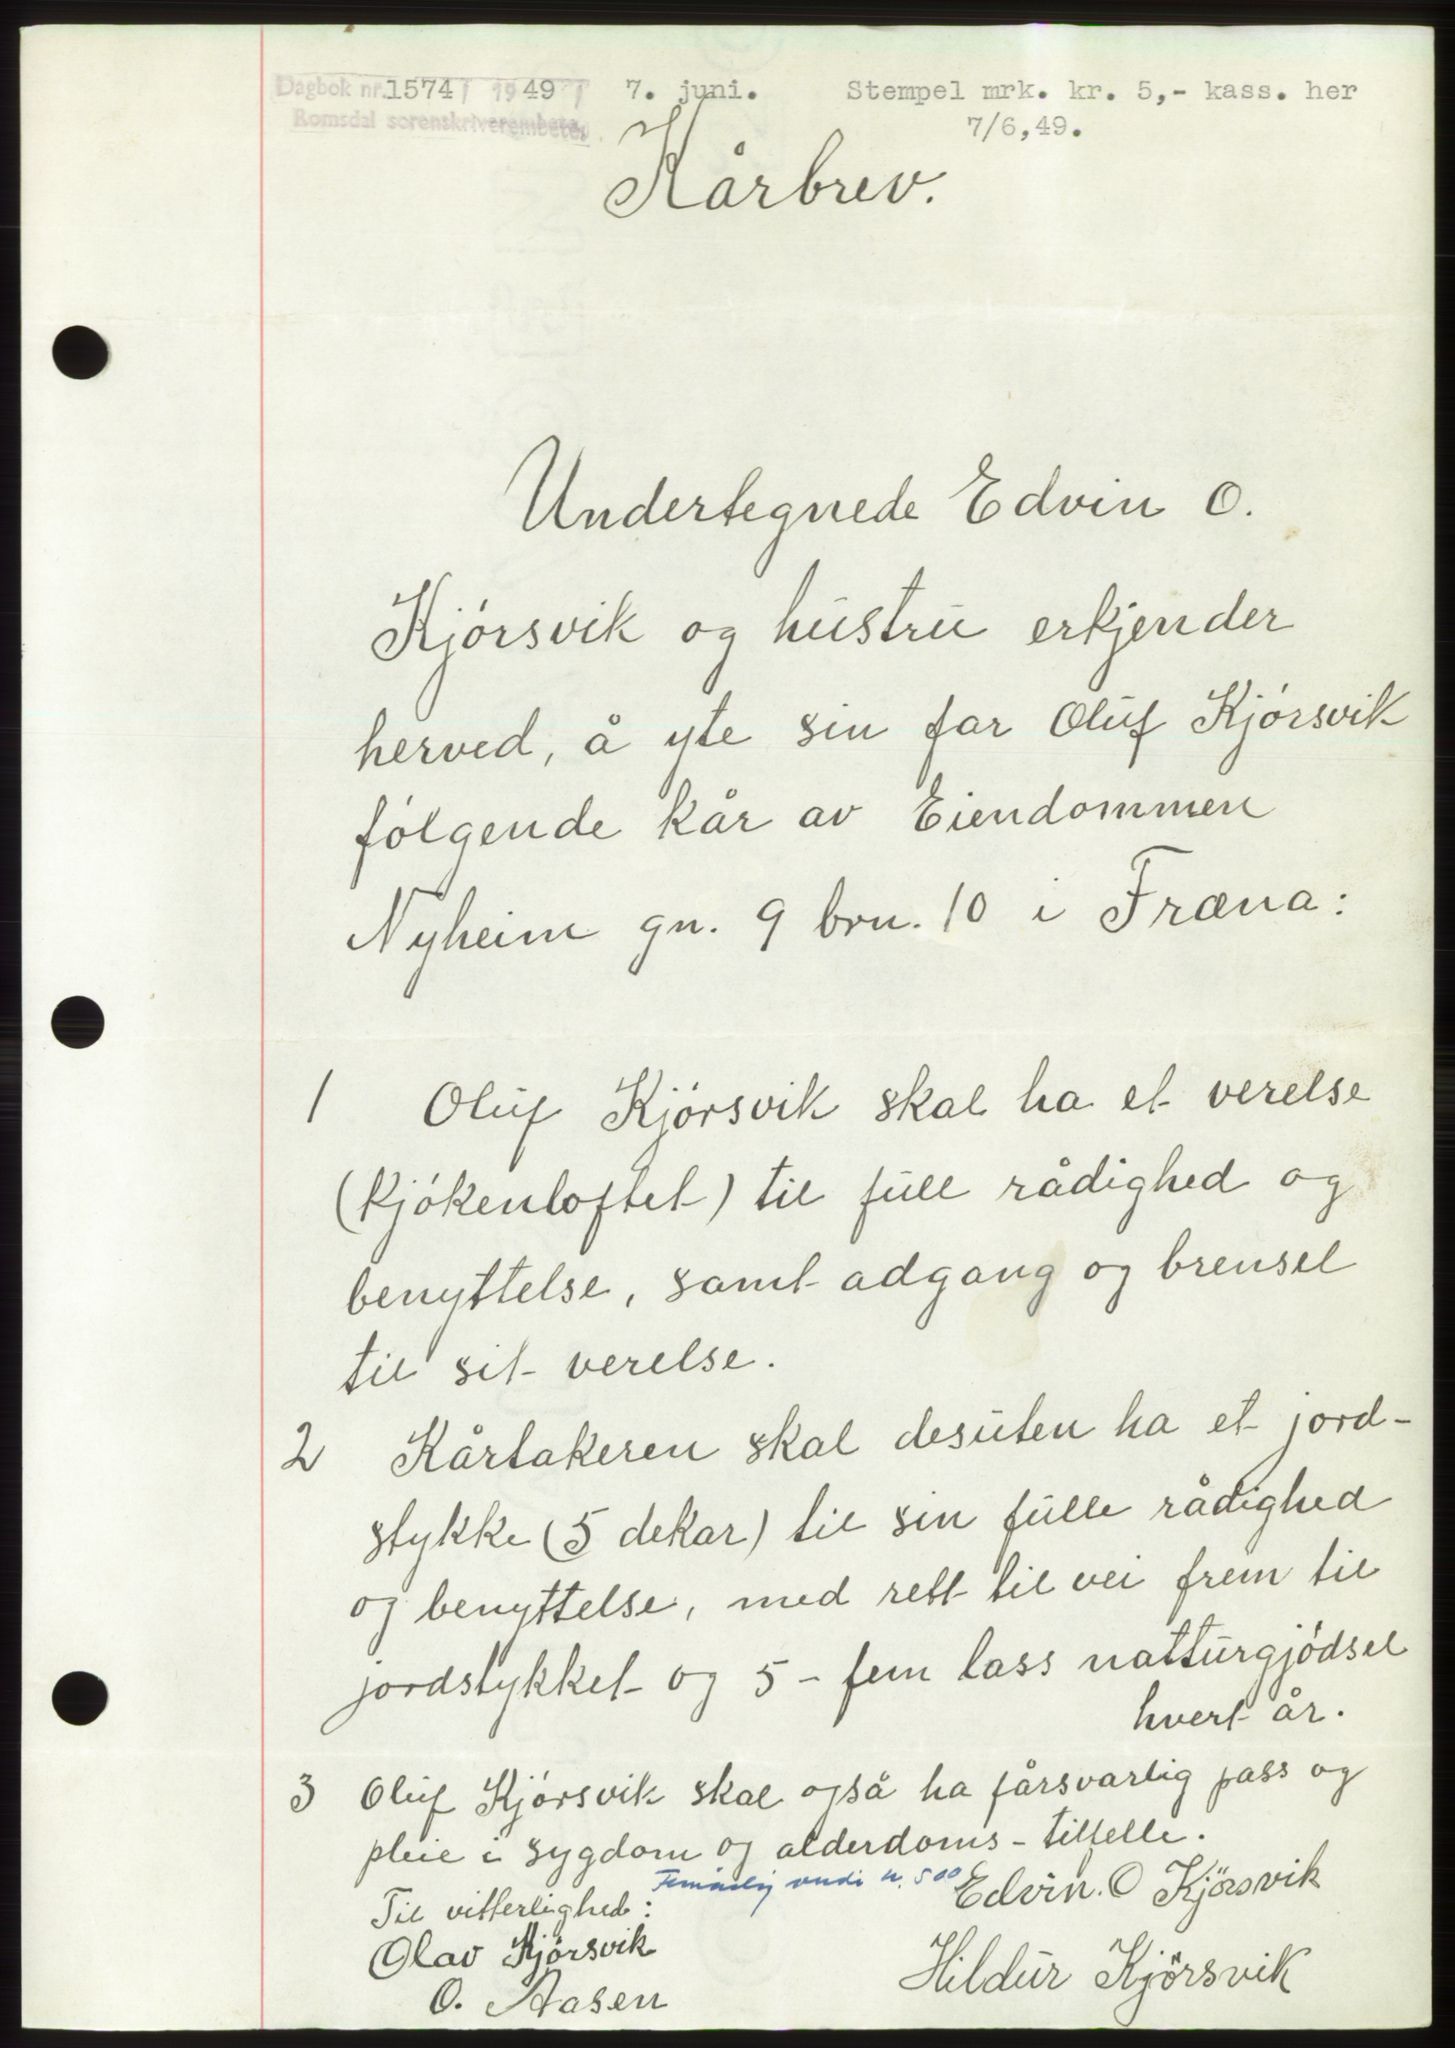 Dagbok nr. 1574 / 1949 / 7. juni. Stempel mrk. kr. 5,- kass. her
Romsdal sorenskriverembete. 7/6,49.
Kårbrev.
Undertegnede Edvin O.
Kjórsvik og hustru erkjender
herved, å yte sin far Oluf Kjórsvik
fólgende kår av Eiendommen
Nyheim gn. 9 brn. 10 i Fræna:
1 Oluf Kjórsvik skal ha et verelse
(kjókenloftet) til full rådighed og
benyttelse, samt adgang og brensel
til sit verelse.
2 Kårtakeren skal desuten ha et jord-
stykke (5 dekar) til sin fulle rådighed
og benyttelse, med rett til vei frem til
jordstykket og 5 - fem lass natturgjódsel
hvert år.
3 Oluf Kjórsvik skal også ha fårsvarlig pass og
pleie i sygdom og alderdoms - tilfelle.
Femårlig verdi kr. 500
Til vitterlighed: Edvin. O Kjörsvik
Olav Kjörsvik
Hildur Kjörsvik
O. Aasen